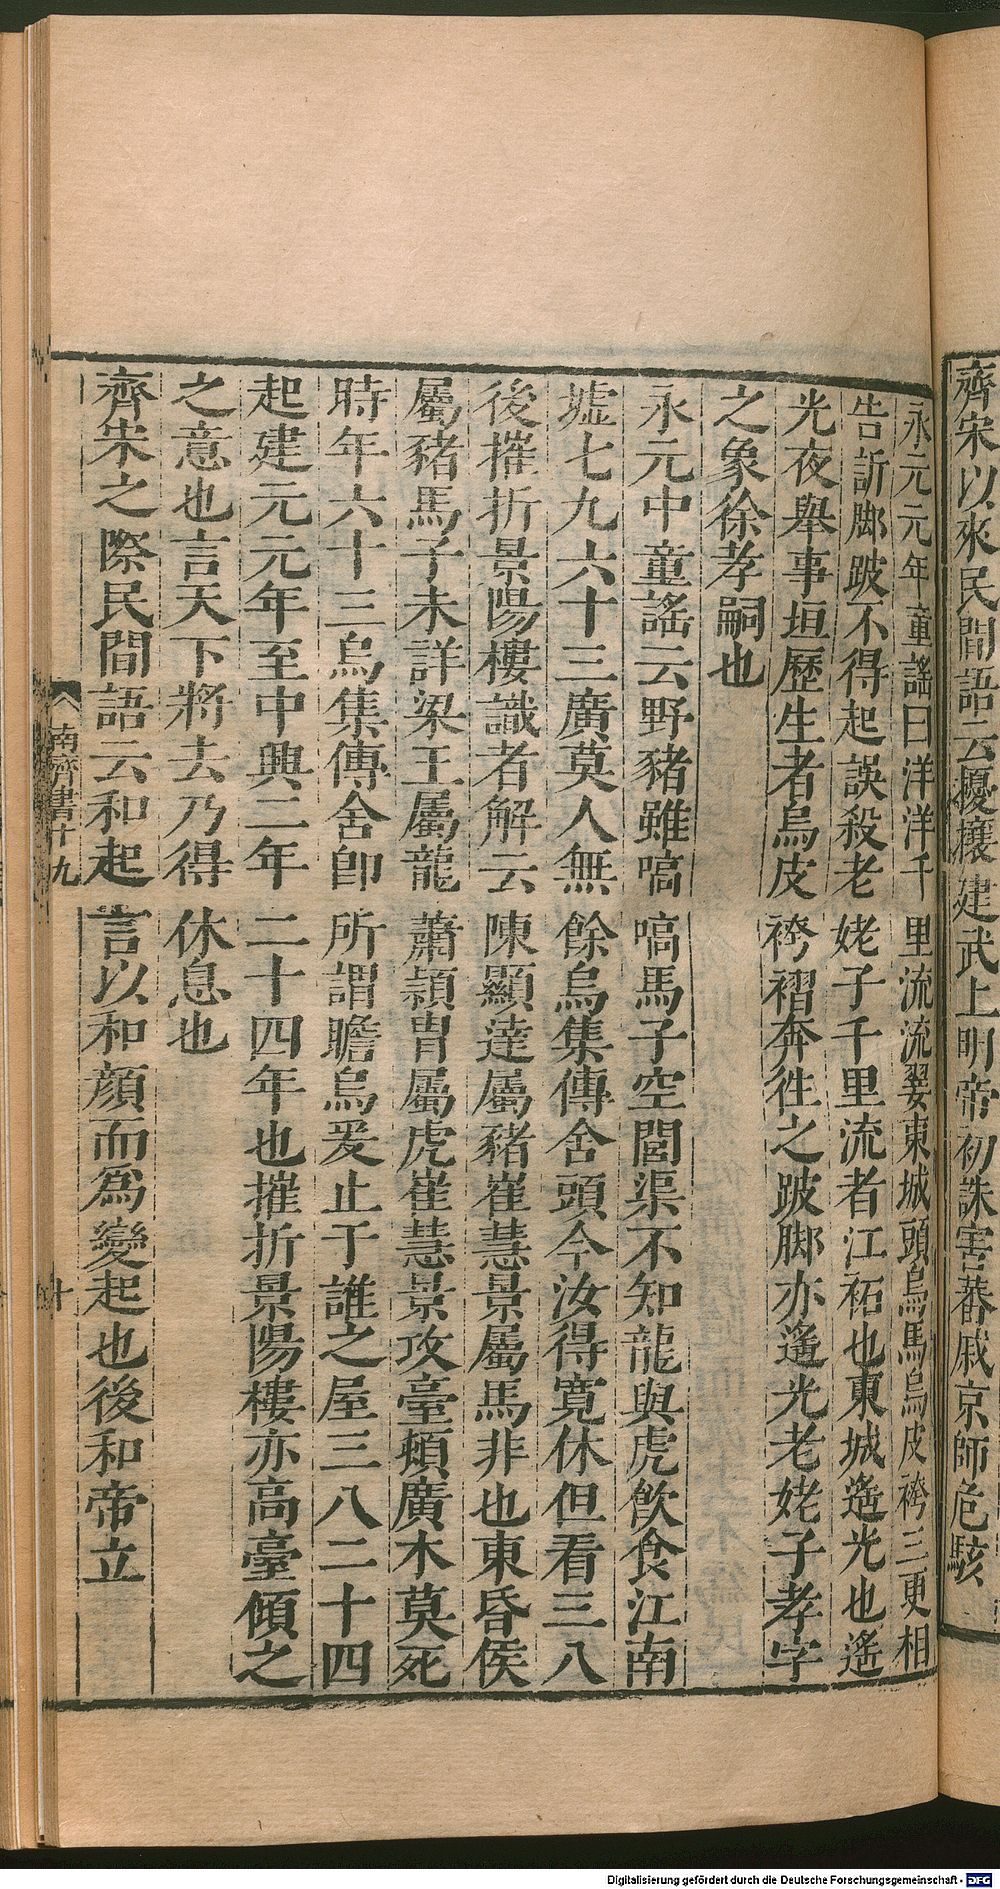 齊宋以來民間語云擾攘建武上明帝初誅害蕃戚京師危駭
永元元年童謠曰洋洋千里流流翣東城頭烏馬烏皮袴三更相
告訢脚跛不得起誤殺老姥子千里流者江祏也東城遙光也遙
光夜舉事垣歷生者烏皮袴褶奔徃之跛脚亦遙光老姥子孝字
之象徐孝嗣也
永元中童謠云野豬雖嗃嗃馬子空閭渠不知龍與虎飮食江南
墟七九六十三廣莫人無餘烏集傳舍頭今汝得寬休但看三八
後摧折景陽樓識者解云陳顯達屬豬崔慧景屬馬非也東昏侯
屬豬馬子未詳梁王屬龍蕭頴胄屬虎崔慧景攻臺頓廣木莫死
時年六十三烏集傳舍卽所謂瞻烏爰止于誰之屋三八二十四
起建元元年至中興二年二十四年也摧折景陽樓亦高臺傾之
之意也言天下將去乃得休息也
齊宋之際民間語云和起言以和顏而爲變起也後和帝立
南齊書十九
十
Digitalisierung gefördert durch die Deutsche Forschungsgemeinschaft - DFG